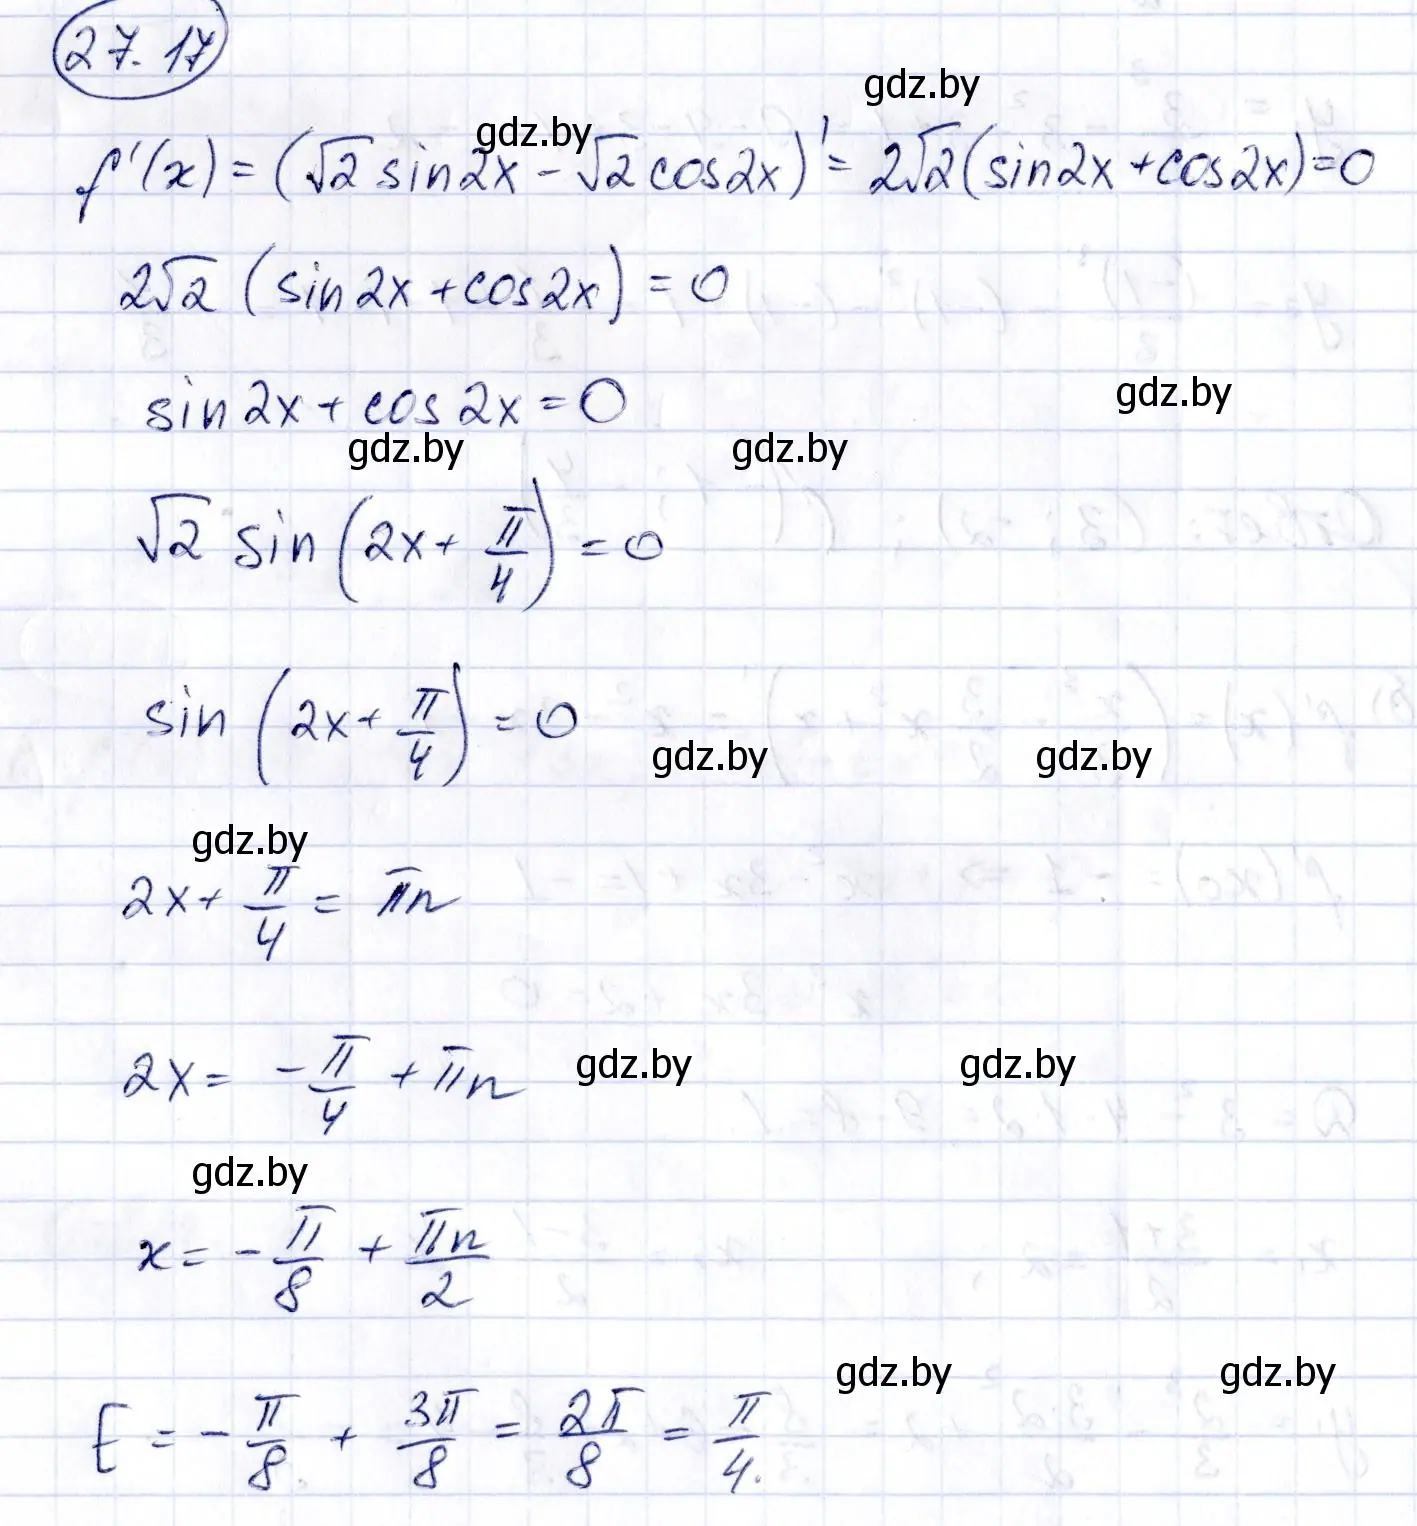 27.17
gdz.by
gdz.by
f'(x) = (√2 sin2x - √2 cos2x)' = 2√2 (sin2x + cos2x) = 0
2√2 (sin2x + cos2x) = 0
gdz.by
sin2x + cos2x = 0
gdz.by gdz.by
√2 sin (2x + π/4) = 0
sin (2x + π/4) = 0
gdz.by gdz.by
gdz.by
2x + π/4 = πn
gdz.by gdz.by
2x = - π/4 + πn
gdz.by
x = - π/8 + πn/2
gdz.by gdz.by
Σ = - π/8 + 3π/8 = 2π/8 = π/4.